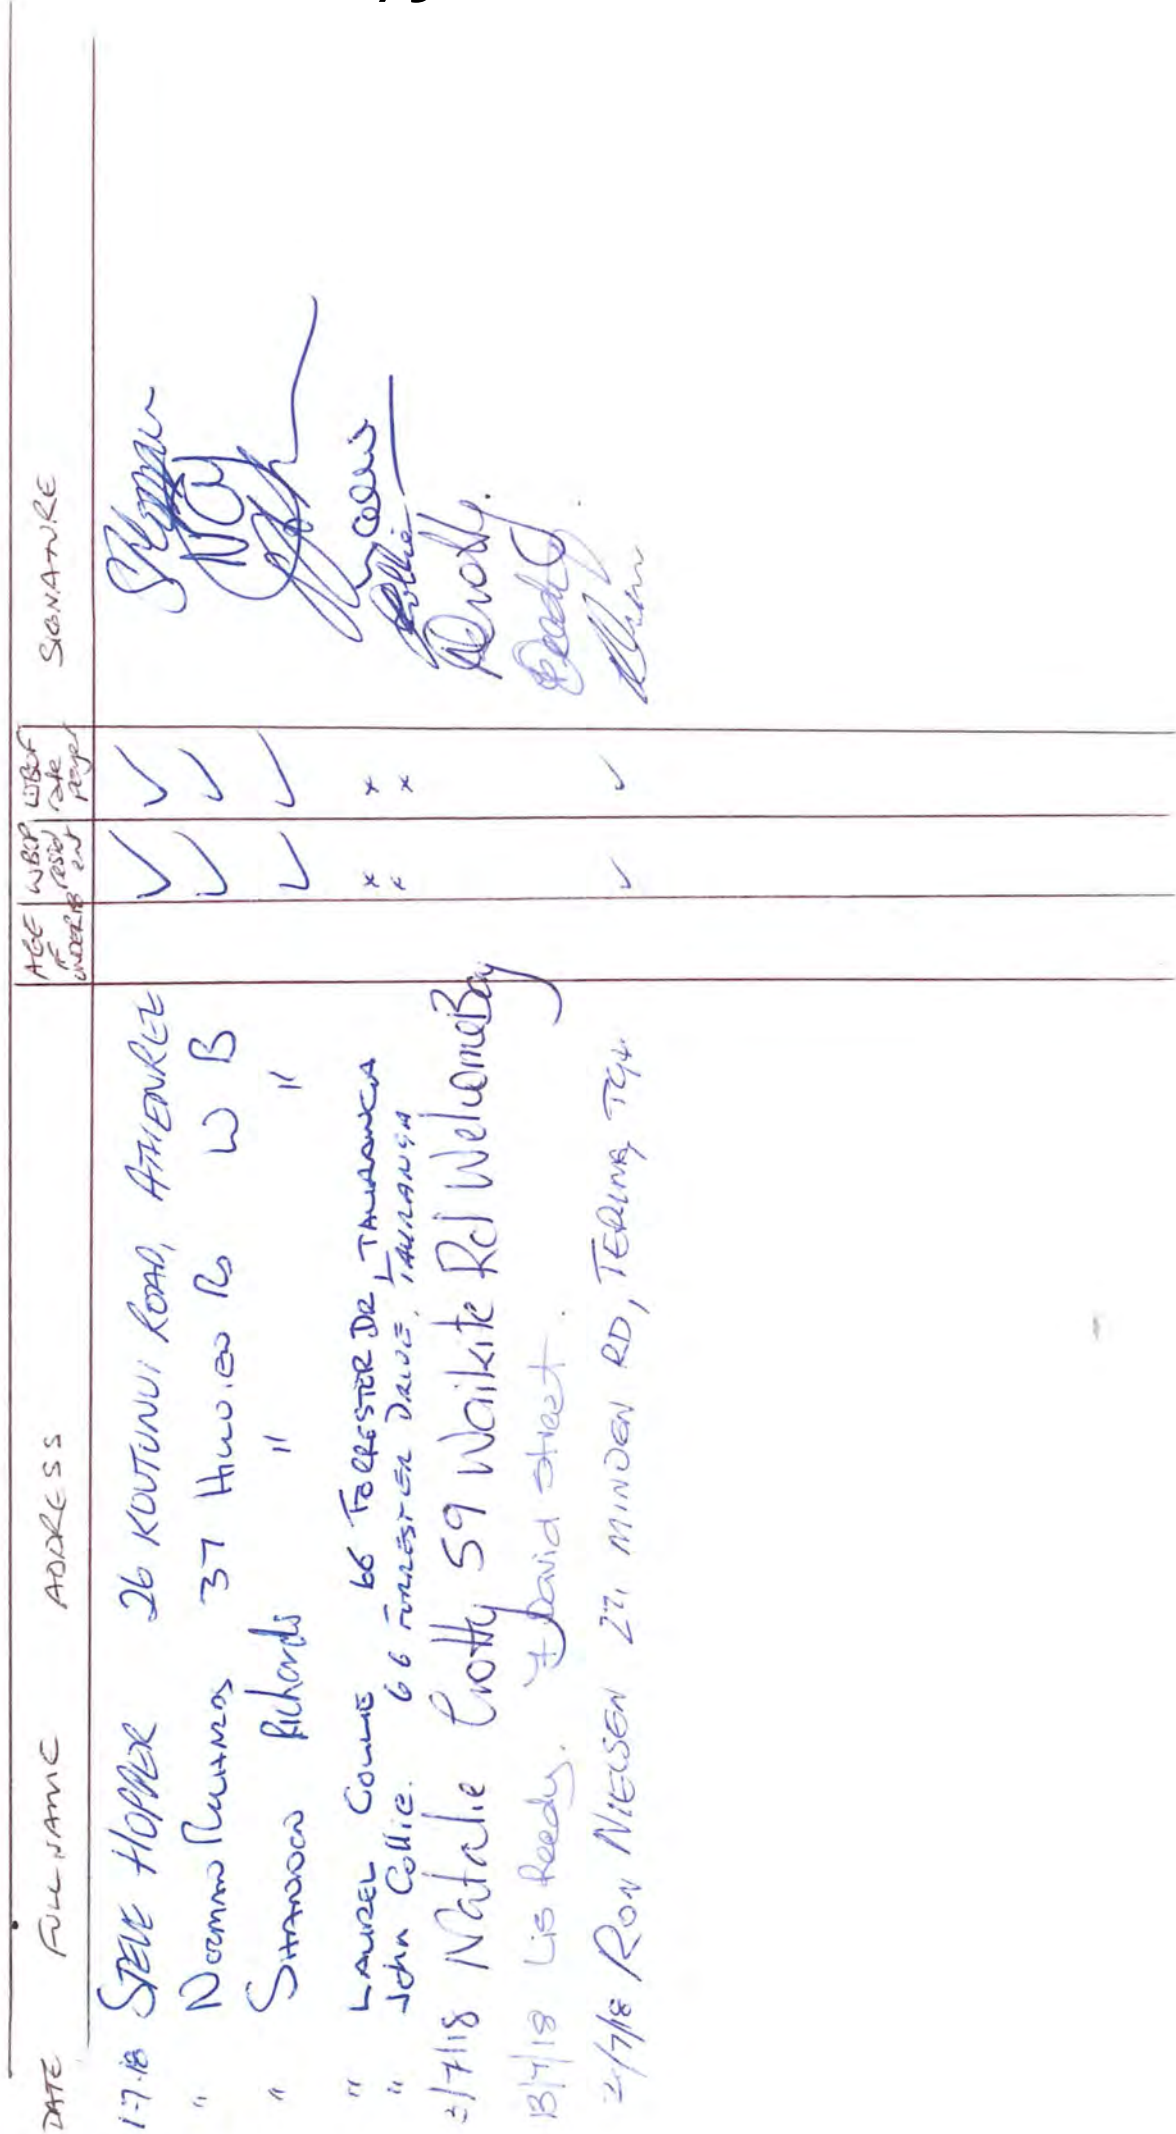 DATE FULL NAME ADDRESS AGE IF UNDER 18 WBOP resident WBOP rate payer SIGNATURE
1-7-18 STEVE HOPPER 26 KOUTUNUI ROAD, ATHENREE ✓ ✓
" Norman Richards 37 W B ✓ ✓
" SHANNON Richards " " ✓ ✓
" LAUREL COLLIE 66 FORRESTER DR, TAURANGA x x
" John Collie. 66 FORRESTER DRIVE, TAURANGA x x
/7/18 Natalie Crotty 59 Waikite Rd Welcome Bay
13/7/18 Lis Reedy. David Street.
/7/18 RON NIELSEN MINDEN RD, TE PUNA, ✓ ✓